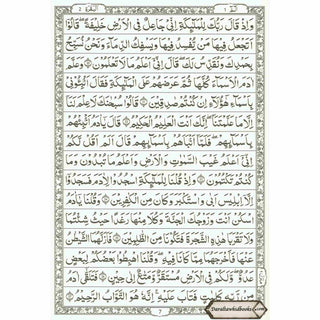 البقرة ٢
الٓمّٓ ١
وَاِذْ قَالَ رَبُّكَ لِلْمَلٰٓئِكَةِ اِنِّیْ جَاعِلٌ فِی الْاَرْضِ خَلِیْفَةً ؕ قَالُوْۤا
اَتَجْعَلُ فِیْهَا مَنْ یُّفْسِدُ فِیْهَا وَیَسْفِكُ الدِّمَآءَ ۚ وَنَحْنُ نُسَبِّحُ
بِحَمْدِكَ وَنُقَدِّسُ لَكَ ؕ قَالَ اِنِّیْۤ اَعْلَمُ مَا لَا تَعْلَمُوْنَ ۝ وَعَلَّمَ
اٰدَمَ الْاَسْمَآءَ كُلَّهَا ثُمَّ عَرَضَهُمْ عَلَی الْمَلٰٓئِكَةِ ۙ فَقَالَ اَنْۢبِـُٔوْنِیْ
بِاَسْمَآءِ هٰۤؤُلَآءِ اِنْ كُنْتُمْ صٰدِقِیْنَ ۝ قَالُوْا سُبْحٰنَكَ لَا عِلْمَ لَنَاۤ
اِلَّا مَا عَلَّمْتَنَا ؕ اِنَّكَ اَنْتَ الْعَلِیْمُ الْحَكِیْمُ ۝ قَالَ یٰۤاٰدَمُ اَنْۢبِئْهُمْ
بِاَسْمَآئِهِمْ ۚ فَلَمَّاۤ اَنْۢبَاَهُمْ بِاَسْمَآئِهِمْ ۙ قَالَ اَلَمْ اَقُلْ لَّكُمْ
اِنِّیْۤ اَعْلَمُ غَیْبَ السَّمٰوٰتِ وَالْاَرْضِ ۙ وَاَعْلَمُ مَا تُبْدُوْنَ وَمَا
كُنْتُمْ تَكْتُمُوْنَ ۝ وَاِذْ قُلْنَا لِلْمَلٰٓئِكَةِ اسْجُدُوْا لِاٰدَمَ فَسَجَدُوْۤا
اِلَّاۤ اِبْلِیْسَ ؕ اَبٰی وَاسْتَكْبَرَ ۗ وَكَانَ مِنَ الْكٰفِرِیْنَ ۝ وَقُلْنَا یٰۤاٰدَمُ
اسْكُنْ اَنْتَ وَزَوْجُكَ الْجَنَّةَ وَكُلَا مِنْهَا رَغَدًا حَیْثُ شِئْتُمَا ۪
وَلَا تَقْرَبَا هٰذِهِ الشَّجَرَةَ فَتَكُوْنَا مِنَ الظّٰلِمِیْنَ ۝ فَاَزَلَّهُمَا الشَّیْطٰنُ
عَنْهَا فَاَخْرَجَهُمَا مِمَّا كَانَا فِیْهِ ۪ وَقُلْنَا اهْبِطُوْا بَعْضُكُمْ لِبَعْضٍ
عَدُوٌّ ۚ وَلَكُمْ فِی الْاَرْضِ مُسْتَقَرٌّ وَّمَتَاعٌ اِلٰی حِیْنٍ ۝ فَتَلَقّٰۤی اٰدَمُ
مِنْ رَّبِّهٖ كَلِمٰتٍ فَتَابَ عَلَیْهِ ؕ اِنَّهٗ هُوَ التَّوَّابُ الرَّحِیْمُ ۝
7
Darulsawhidbooks.com